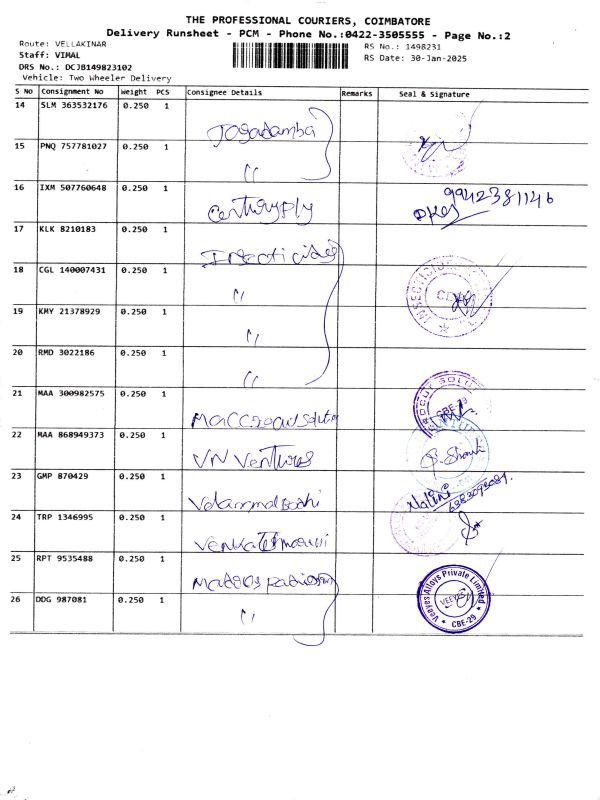 THE PROFESSIONAL COURIERS, COIMBATORE
Delivery Runsheet - PCM - Phone No.:0422-3505555 - Page No.:2
Route: VELLAKINAR
RS No.: 1498231
Staff: VIMAL
RS Date: 30-Jan-2025
DRS No.: DCJB149823102
Vehicle: Two Wheeler Delivery
S No Consignment No Weight PCS Consignee Details Remarks Seal & Signature
14 SLM 363532176 0.250 1 Jagadamba
15 PNQ 757781027 0.250 1 "
16 IXM 507760648 0.250 1 Centuryply 9942381146
17 KLK 8210183 0.250 1 Insecticides
18 CGL 140007431 0.250 1 "
19 KMY 21378929 0.250 1 "
20 RMD 3022186 0.250 1 "
21 MAA 300982575 0.250 1
22 MAA 868949373 0.250 1 VN Ventures
23 GMP 870429 0.250 1 Nalini
24 TRP 1346995 0.250 1
25 RPT 9535488 0.250 1
Veeyes Alloys Private Limited
VEEYES
* CBE-29 *
26 DDG 987081 0.250 1 "